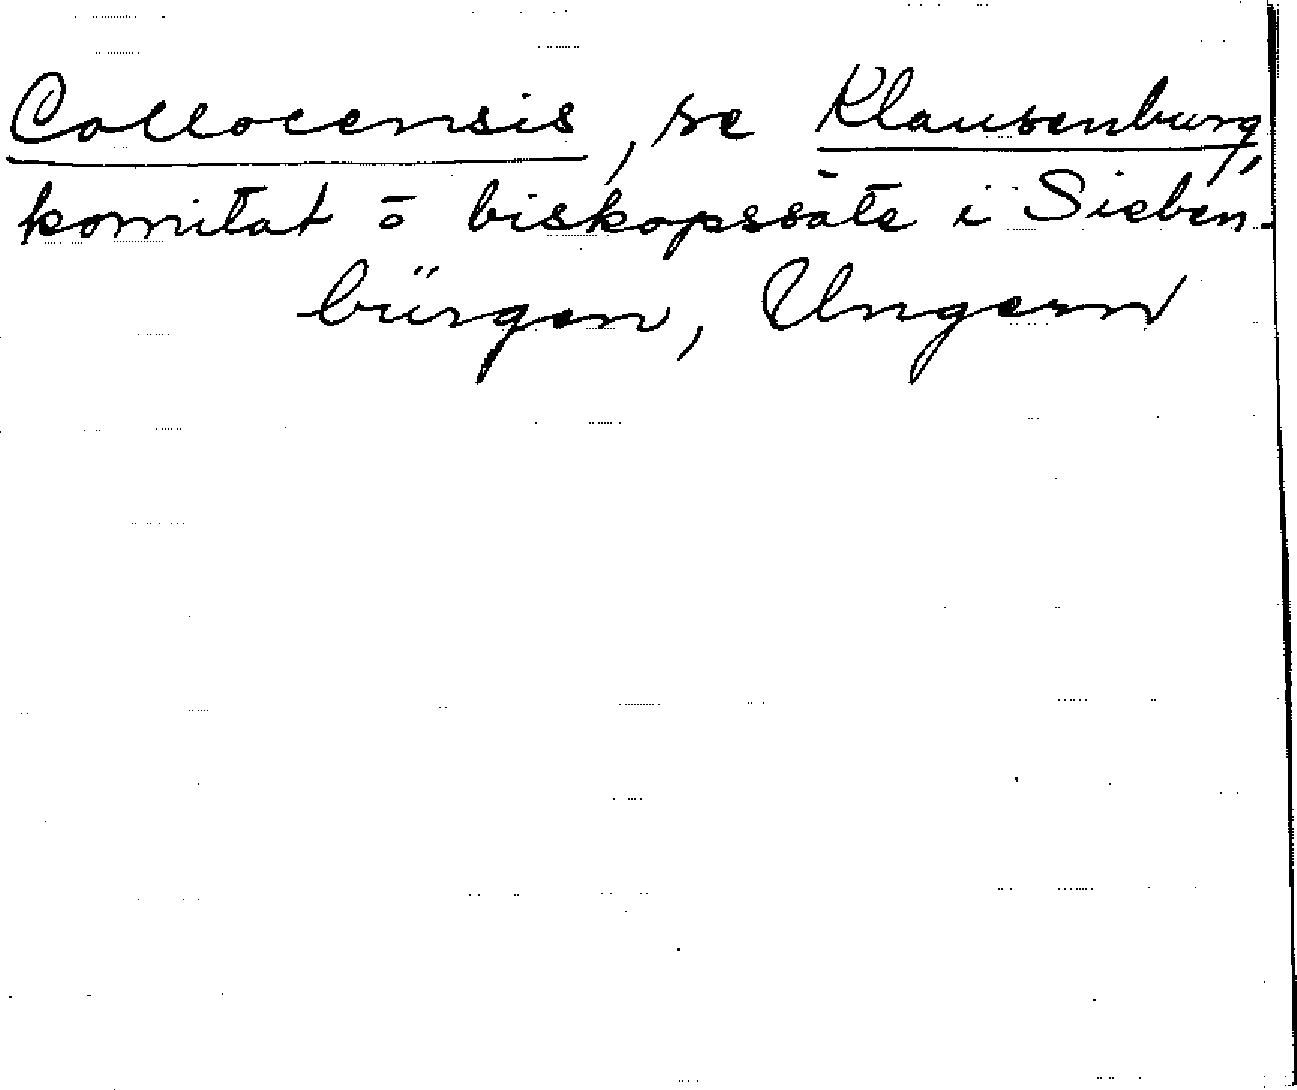 Collocensis, se Klausenburg,
komitat ō biskopssäte i Sieben-
bürgen, Ungern